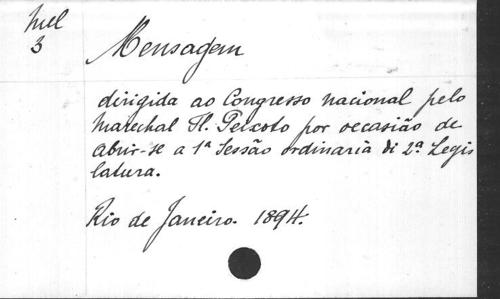 Mel
3
Mensagem
dirigida ao Congresso nacional pelo
Marechal Fl. Peixoto por occasião de
abrir-se a 1ª Sessão ordinaria di 2ª Legis
latura.
Rio de Janeiro. 1894.